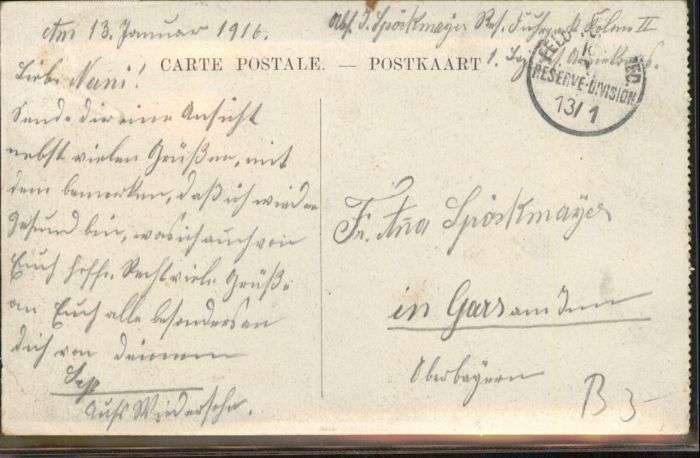 Am 13. Januar 1916.
Abs. J. Spöskmayer Res. Fuhrpark Kolone II
CARTE POSTALE. — POSTKAART
RESERVE-DIVISION
13/1
Liebe Nani!
Sende dir eine Ansicht
nebst vielen Grüßen, mit
dem bemerken, daß ich wieder
Gesund bin, was ich auch von
Euch hoffe. Recht viele Grüße
an Euch alle besonders an
dich von deinem
Sepp
Aufs Wiedersehn.
Fr. Ana Spöskmayer
in Gars am Inn
Oberbayern
B 3-